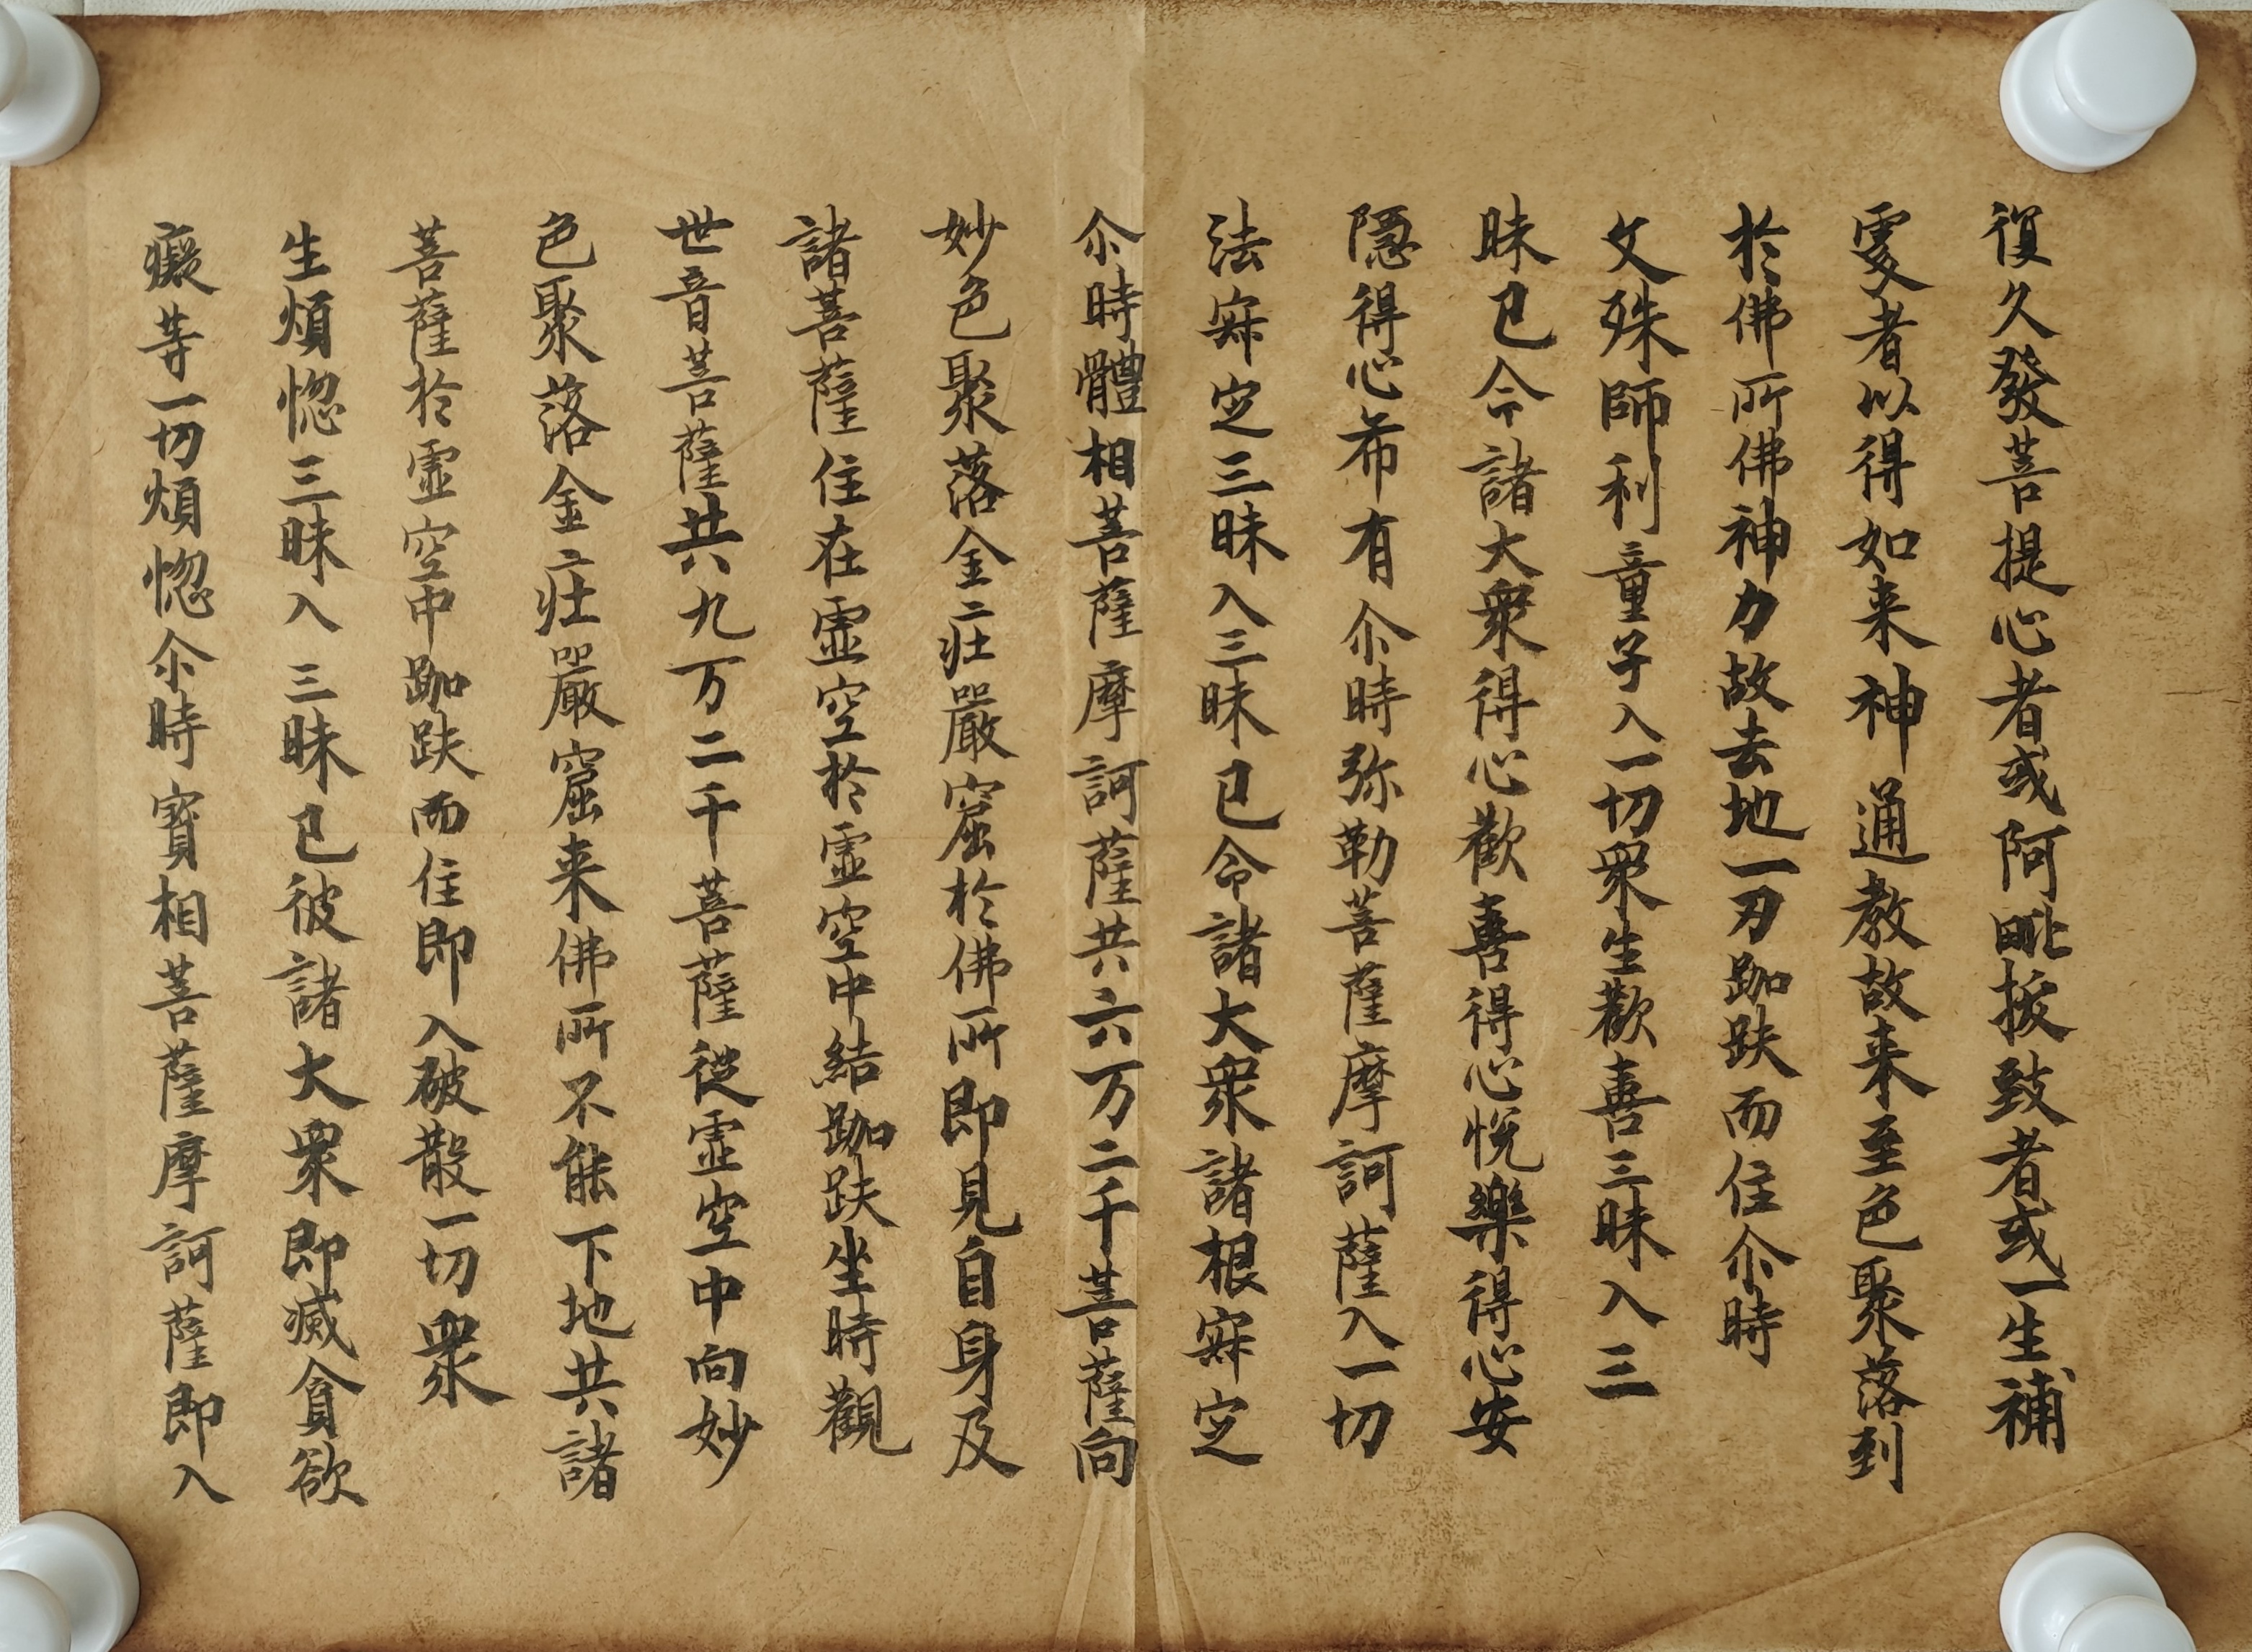 復久發菩提心者或阿毗拔致者或一生補
處者以得如来神通教故来至色聚落到
於佛所佛神力故去地一刃跏趺而住尒時
文殊師利童子入一切衆生歡喜三昧入三
昧已令諸大衆得心歡喜得心悦樂得心安
隱得心希有尒時弥勒菩薩摩訶薩入一切
法寂定三昧入三昧已令諸大衆諸根寂定
尒時體相菩薩摩訶薩共六万二千菩薩向
妙色聚落金二莊嚴窟於佛所即見自身及
諸菩薩住在虛空於虛空中結跏趺坐時觀
世音菩薩共九万二千菩薩從虛空中向妙
色聚落金二莊嚴窟来佛所不能下地共諸
菩薩於虛空中跏趺而住即入破散一切衆
生煩惚三昧入三昧已彼諸大衆即滅貪欲
癡等一切煩惚尒時寳相菩薩摩訶薩即入